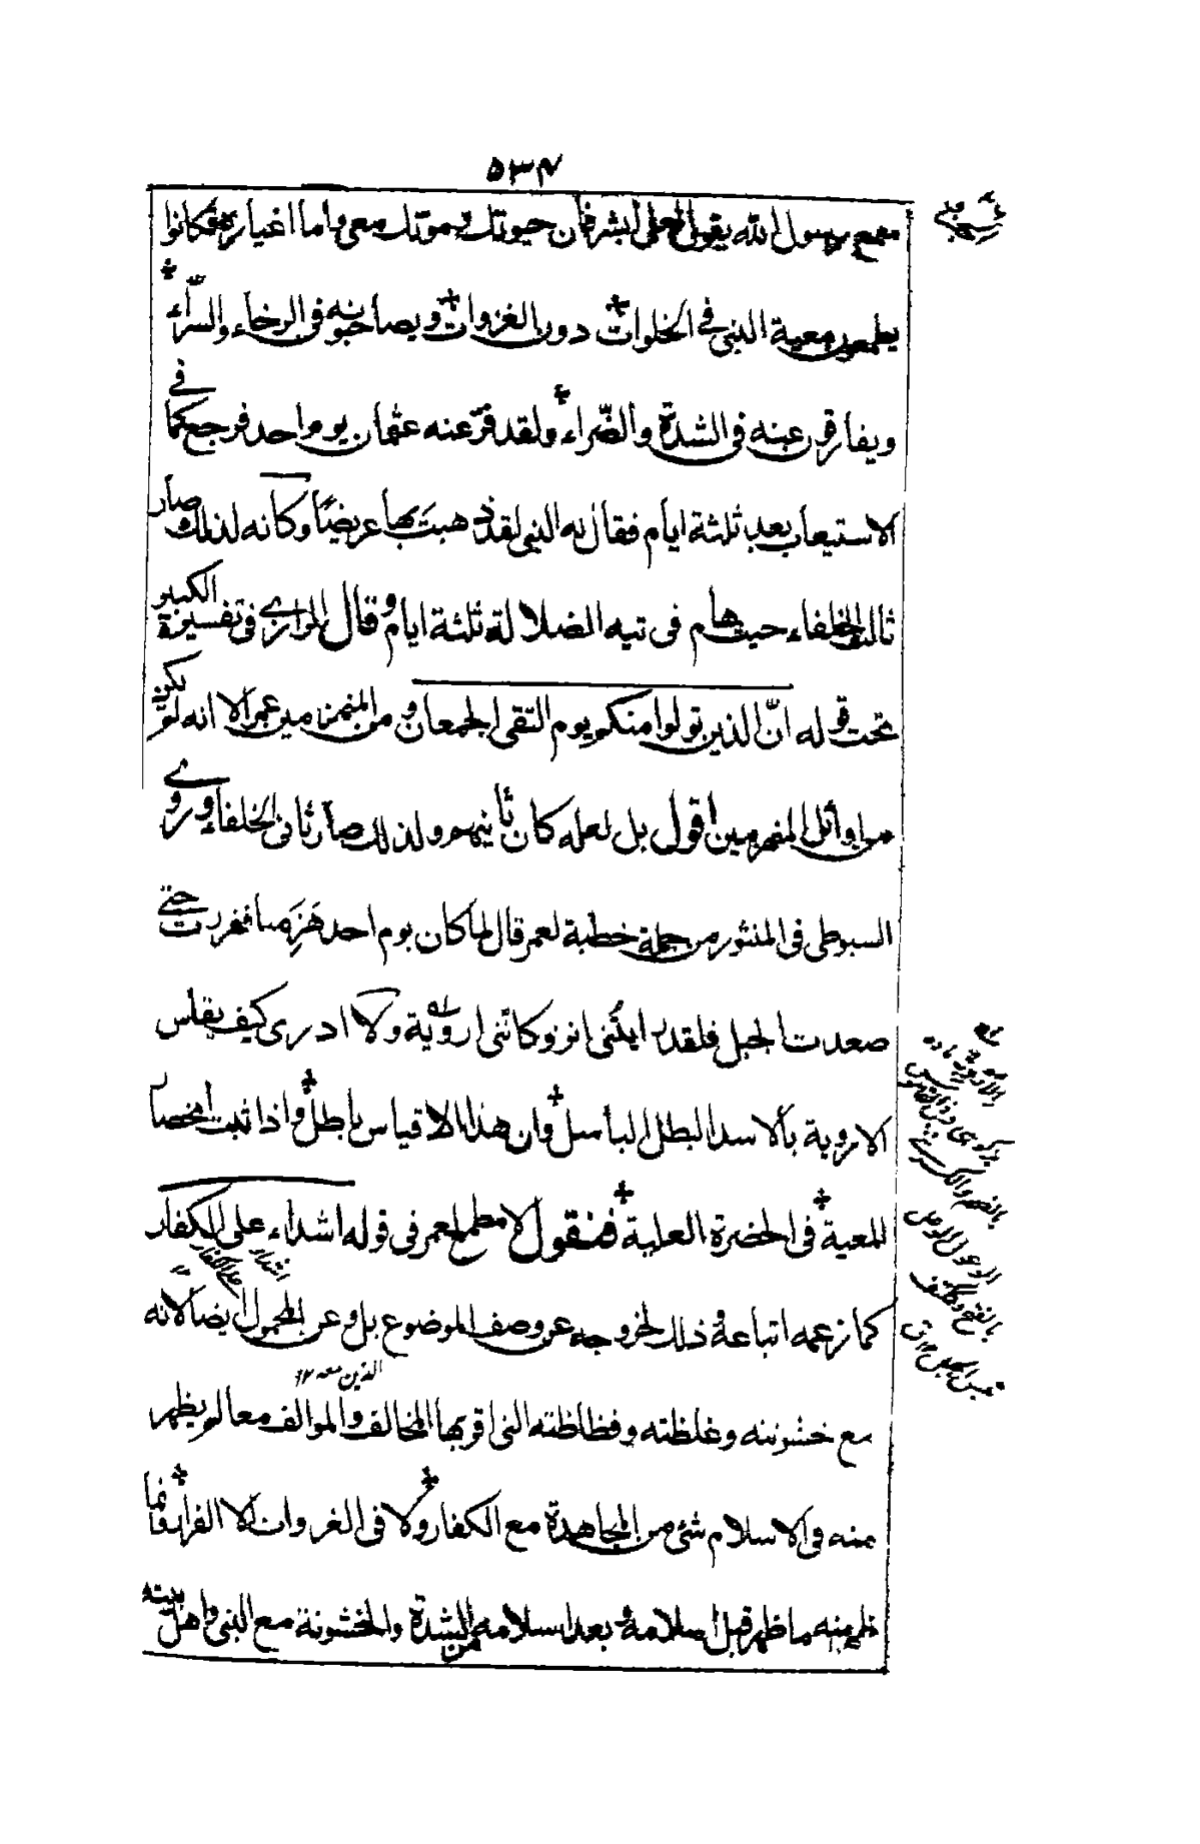 ۵۳۴
سمع رسول الله يقول لعلي ابشر فان حيوتك وموتك معي واما اغياره فكانوا
يطمعون معية النبي في الخلوات دون الغزوات ويصاحبونه في الرخاء والسراء
ويفارقون عنه في الشدة والضراء ولقد فرّ عنه عثمان يوم احد فرجع كما في
الاستيعاب بعد ثلثة ايام فقال له النبي لقد ذهبت بها عريضًا وكانه لذلك صار
ثالث الخلفاء حيث هام في تيه الضلالة ثلثة ايام وقال الرازي في تفسيره الكبير
تحت قوله انّ الذين تولوا منكم يوم التقى الجمعان ومن المنهزمين عمر الا انه لم يكن
من اوائل المنهزمين اقول بل لعله كان ثانيهم ولذلك صار ثاني الخلفاء وروى
السيوطي في المنثور من جملة خطبة لعمر قال لما كان يوم احد هَزَمنا ففررت حتى
صعدت الجبل فلقد رايتُني انزو كانّني اروية ولا ادري كيف يقاس
الاروية بالاسد البطل الباسل وان هذا الا قياس باطل واذا ثبت اختصاص
المعية في الحضرة العلية فنقول لا مطمع لعمر في قوله اشداء على الكفار
كما زعمه اتباعه وذلك لخروجه عن وصف الموضوع بل وعن المحمول ايضا لانه
اشداء على الكفار
مع خشونته وغلظته وفظاظته التي اقر بها المخالف والموالف معا لم يظهر
الذين معه ۱۲
منه في الاسلام شئ من المجاهدة مع الكفار ولا في الغزوات الا الفرار فما
ظهر منه ما ظهر قبل اسلامه وبعد اسلامه من الشدة والخشونة مع النبي واهل بيته